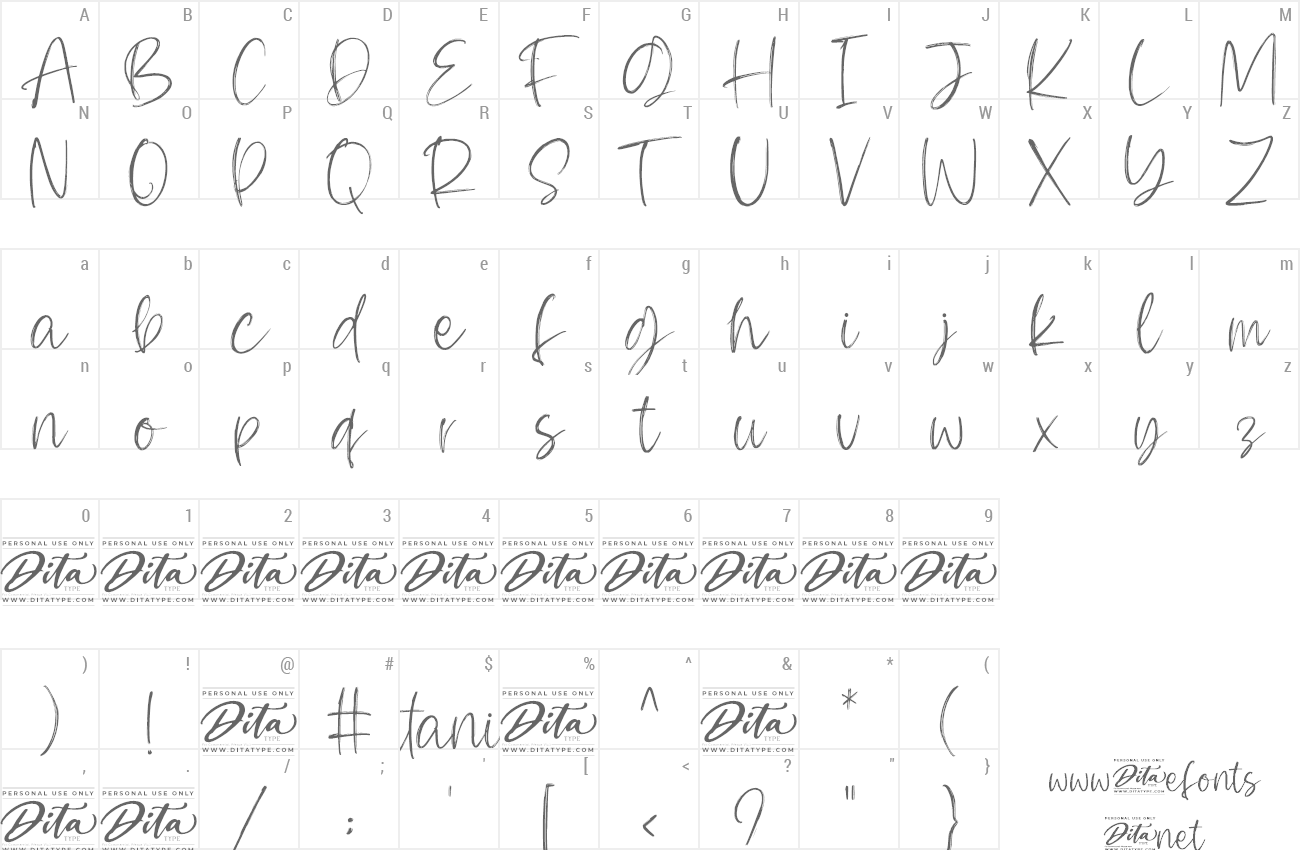 A B C D E F G H I J K L M
A B C D E F G H I J K L M
N O P Q R S T U V W X Y Z
N O P Q R S T U V W X Y Z
a b c d e f g h i j k l m
a b c d e f g h i j k l m
n o p q r s t u v w x y z
n o p q r s t u v w x y z
0 1 2 3 4 5 6 7 8 9
PERSONAL USE ONLY PERSONAL USE ONLY PERSONAL USE ONLY PERSONAL USE ONLY PERSONAL USE ONLY PERSONAL USE ONLY PERSONAL USE ONLY PERSONAL USE ONLY PERSONAL USE ONLY PERSONAL USE ONLY
Dita Dita Dita Dita Dita Dita Dita Dita Dita Dita
TYPE TYPE TYPE TYPE TYPE TYPE TYPE TYPE TYPE TYPE
WWW.DITATYPE.COM WWW.DITATYPE.COM WWW.DITATYPE.COM WWW.DITATYPE.COM WWW.DITATYPE.COM WWW.DITATYPE.COM WWW.DITATYPE.COM WWW.DITATYPE.COM WWW.DITATYPE.COM WWW.DITATYPE.COM
) ! @ # $ % ^ & * (
PERSONAL USE ONLY PERSONAL USE ONLY PERSONAL USE ONLY
) ! Dita # tani Dita ^ Dita * (
TYPE TYPE TYPE
WWW.DITATYPE.COM WWW.DITATYPE.COM WWW.DITATYPE.COM
, . / ; ' [ < ? " }
PERSONAL USE ONLY PERSONAL USE ONLY
Dita Dita / ; ' [ < ? " }
TYPE TYPE
WWW.DITATYPE.COM WWW.DITATYPE.COM
PERSONAL USE ONLY
www Dita efonts
TYPE
WWW.DITATYPE.COM
PERSONAL USE ONLY
Dita net
TYPE